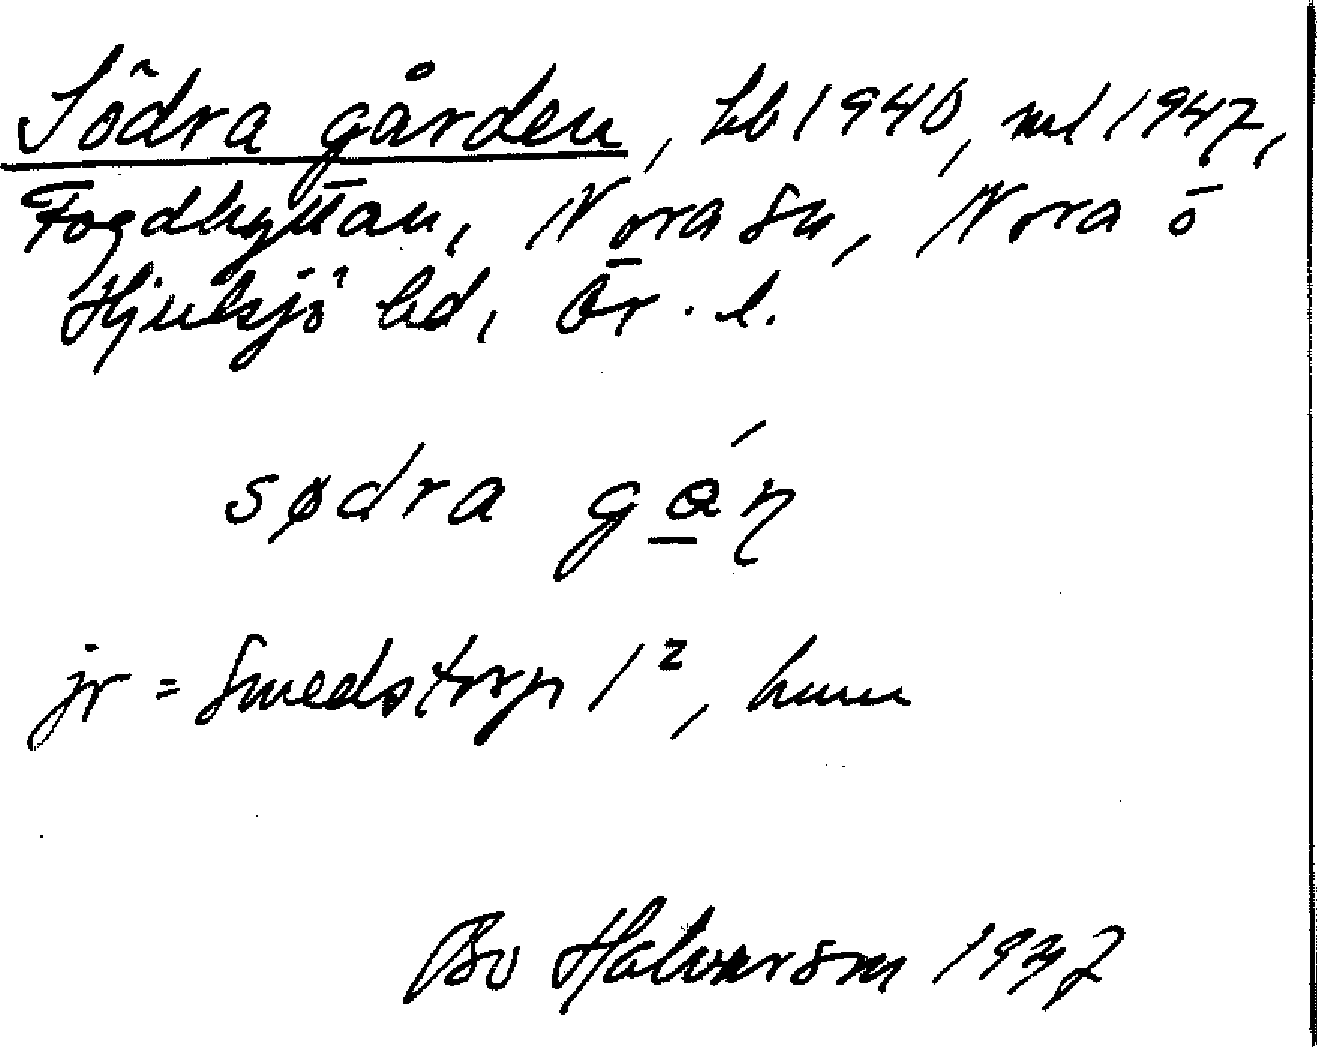 Södra gården, hb 1940, ml 1947,
Fogdhyttan, Nora sn, Nora o
Hjulsjö bd, Ör. l.
sødra gån
jr = Smedstorp 1²,
Bo Halvarson 1937